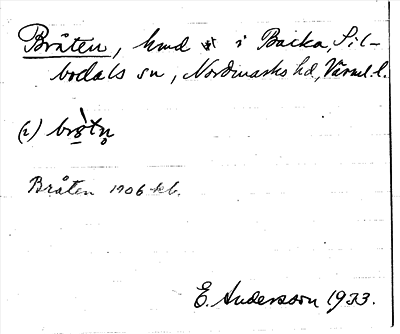 Bråten, hmd i Backa, Sil-
bodals sn, Nordmarks hd, Värml. l.
(i) brò̀tn̥
Bråten 1906 kb.
E. Andersson 1933.